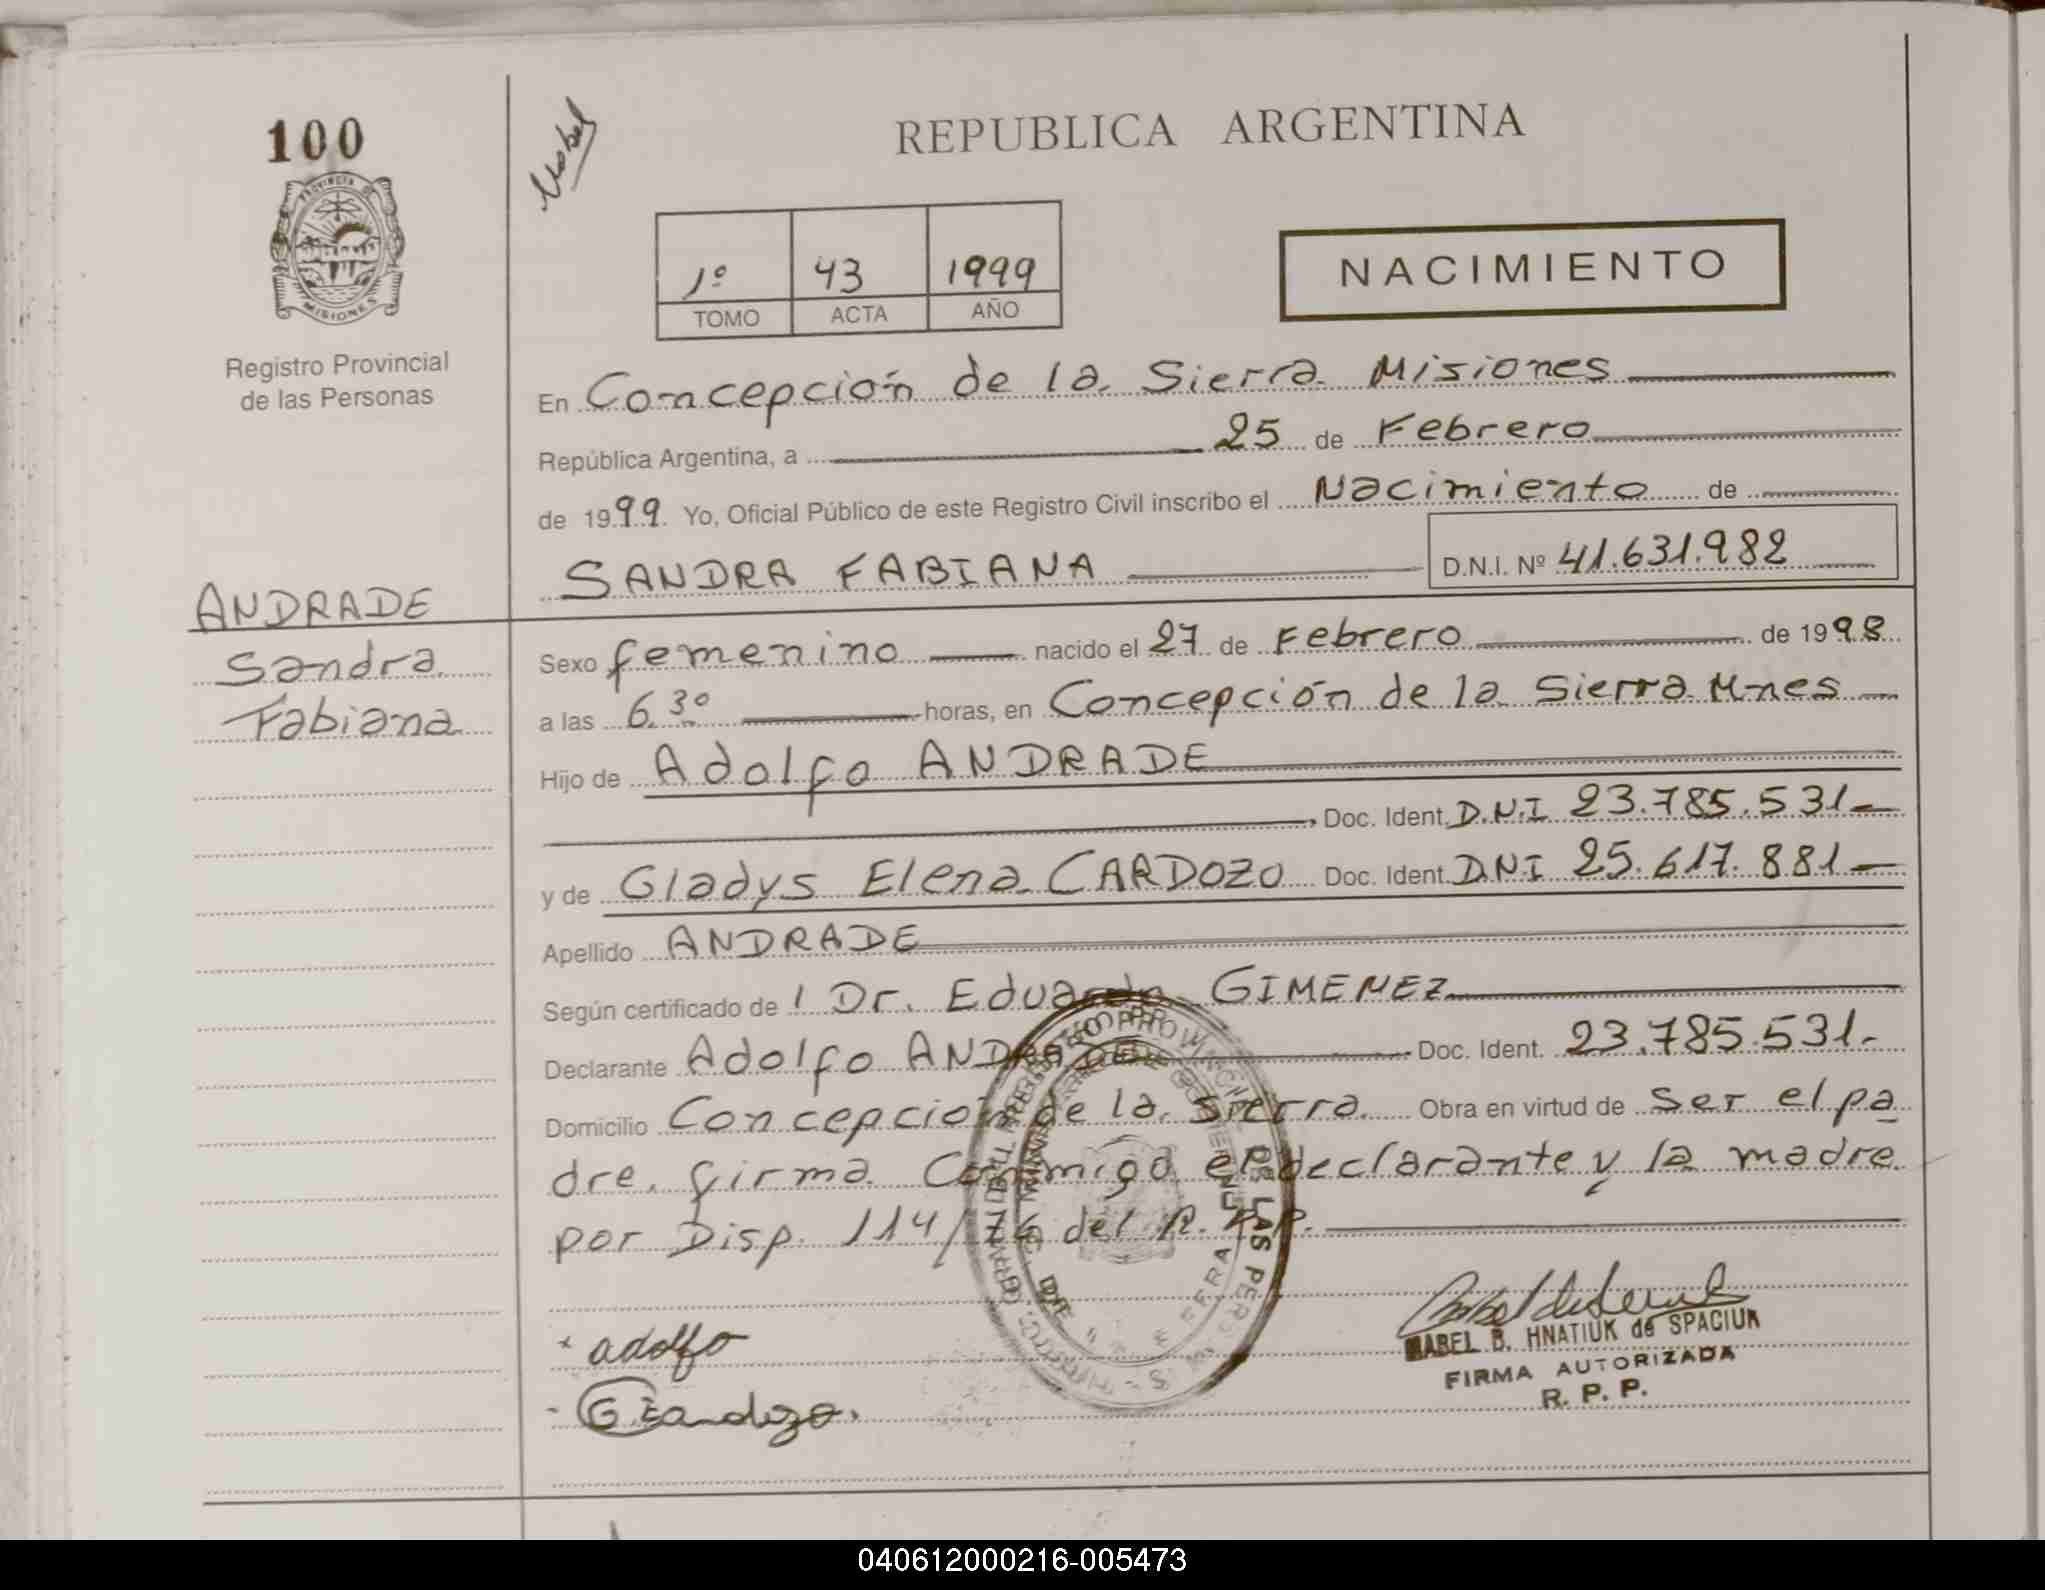 100
Isabel
REPUBLICA ARGENTINA
PROVINCIA DE
MISIONES
Registro Provincial
de las Personas
1º 43 1999
TOMO ACTA AÑO
NACIMIENTO
En Concepción de la Sierra Misiones
República Argentina, a 25 de Febrero
de 1999 Yo, Oficial Público de este Registro Civil inscribo el Nacimiento de
SANDRA FABIANA D.N.I. Nº 41.631.982
ANDRADE
Sandra
Fabiana
Sexo femenino nacido el 27 de Febrero de 1998
a las 6.30 horas, en Concepción de la Sierra Mnes
Hijo de Adolfo ANDRADE
Doc. Ident. D.N.I 23.785.531
y de Gladys Elena CARDOZO Doc. Ident. D.N.I 25.617.881
Apellido ANDRADE
Según certificado de l Dr. Eduardo GIMENEZ
Declarante Adolfo ANDRADE Doc. Ident. 23.785.531.
Domicilio Concepción de la Sierra Obra en virtud de Ser el pa
dre. firma Conmigo el declarante y la madre
por Disp. 114/74 del R.P.P.
adolfo
HNATIUK de SPACIUK
FIRMA AUTORIZADA
R. P. P.
040612000216-005473